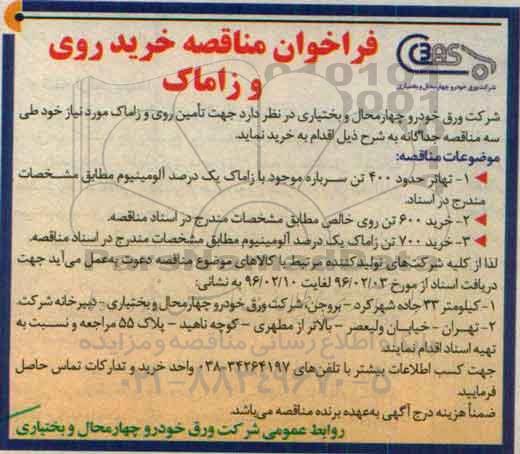 فراخوان مناقصه خرید روی
و زاماک
C3BS
شرکت ورق خودرو چهارمحال و بختیاری
شرکت ورق خودرو چهارمحال و بختیاری در نظر دارد جهت تأمین روی و زاماک مورد نیاز خود طی
سه مناقصه جداگانه به شرح ذیل اقدام به خرید نماید.
موضوعات مناقصه:
۱- تهاتر حدود ۴۰۰ تن سرباره موجود با زاماک یک درصد آلومینیوم مطابق مشخصات
مندرج در اسناد.
۲- خرید ۶۰۰ تن روی خالص مطابق مشخصات مندرج در اسناد مناقصه.
۳- خرید ۷۰۰ تن زاماک یک درصد آلومینیوم مطابق مشخصات مندرج در اسناد مناقصه.
لذا از کلیه شرکت‌های تولیدکننده مرتبط با کالاهای موضوع مناقصه دعوت به‌عمل می‌آید جهت
دریافت اسناد از مورخ ۹۶/۰۲/۰۳ لغایت ۹۶/۰۲/۱۰ به نشانی:
۱- کیلومتر ۳۳ جاده شهرکرد - بروجن، شرکت ورق خودرو چهارمحال و بختیاری - دبیرخانه شرکت.
۲- تهران - خیابان ولیعصر - بالاتر از مطهری - کوچه ناهید - پلاک ۵۵ مراجعه و نسبت به
تهیه اسناد اقدام نمایند.
جهت کسب اطلاعات بیشتر با تلفن‌های ۳۴۲۶۴۱۹۷-۰۳۸ واحد خرید و تدارکات تماس حاصل
فرمایید.
ضمناً هزینه درج آگهی به‌عهده برنده مناقصه می‌باشد.
روابط عمومی شرکت ورق خودرو چهارمحال و بختیاری